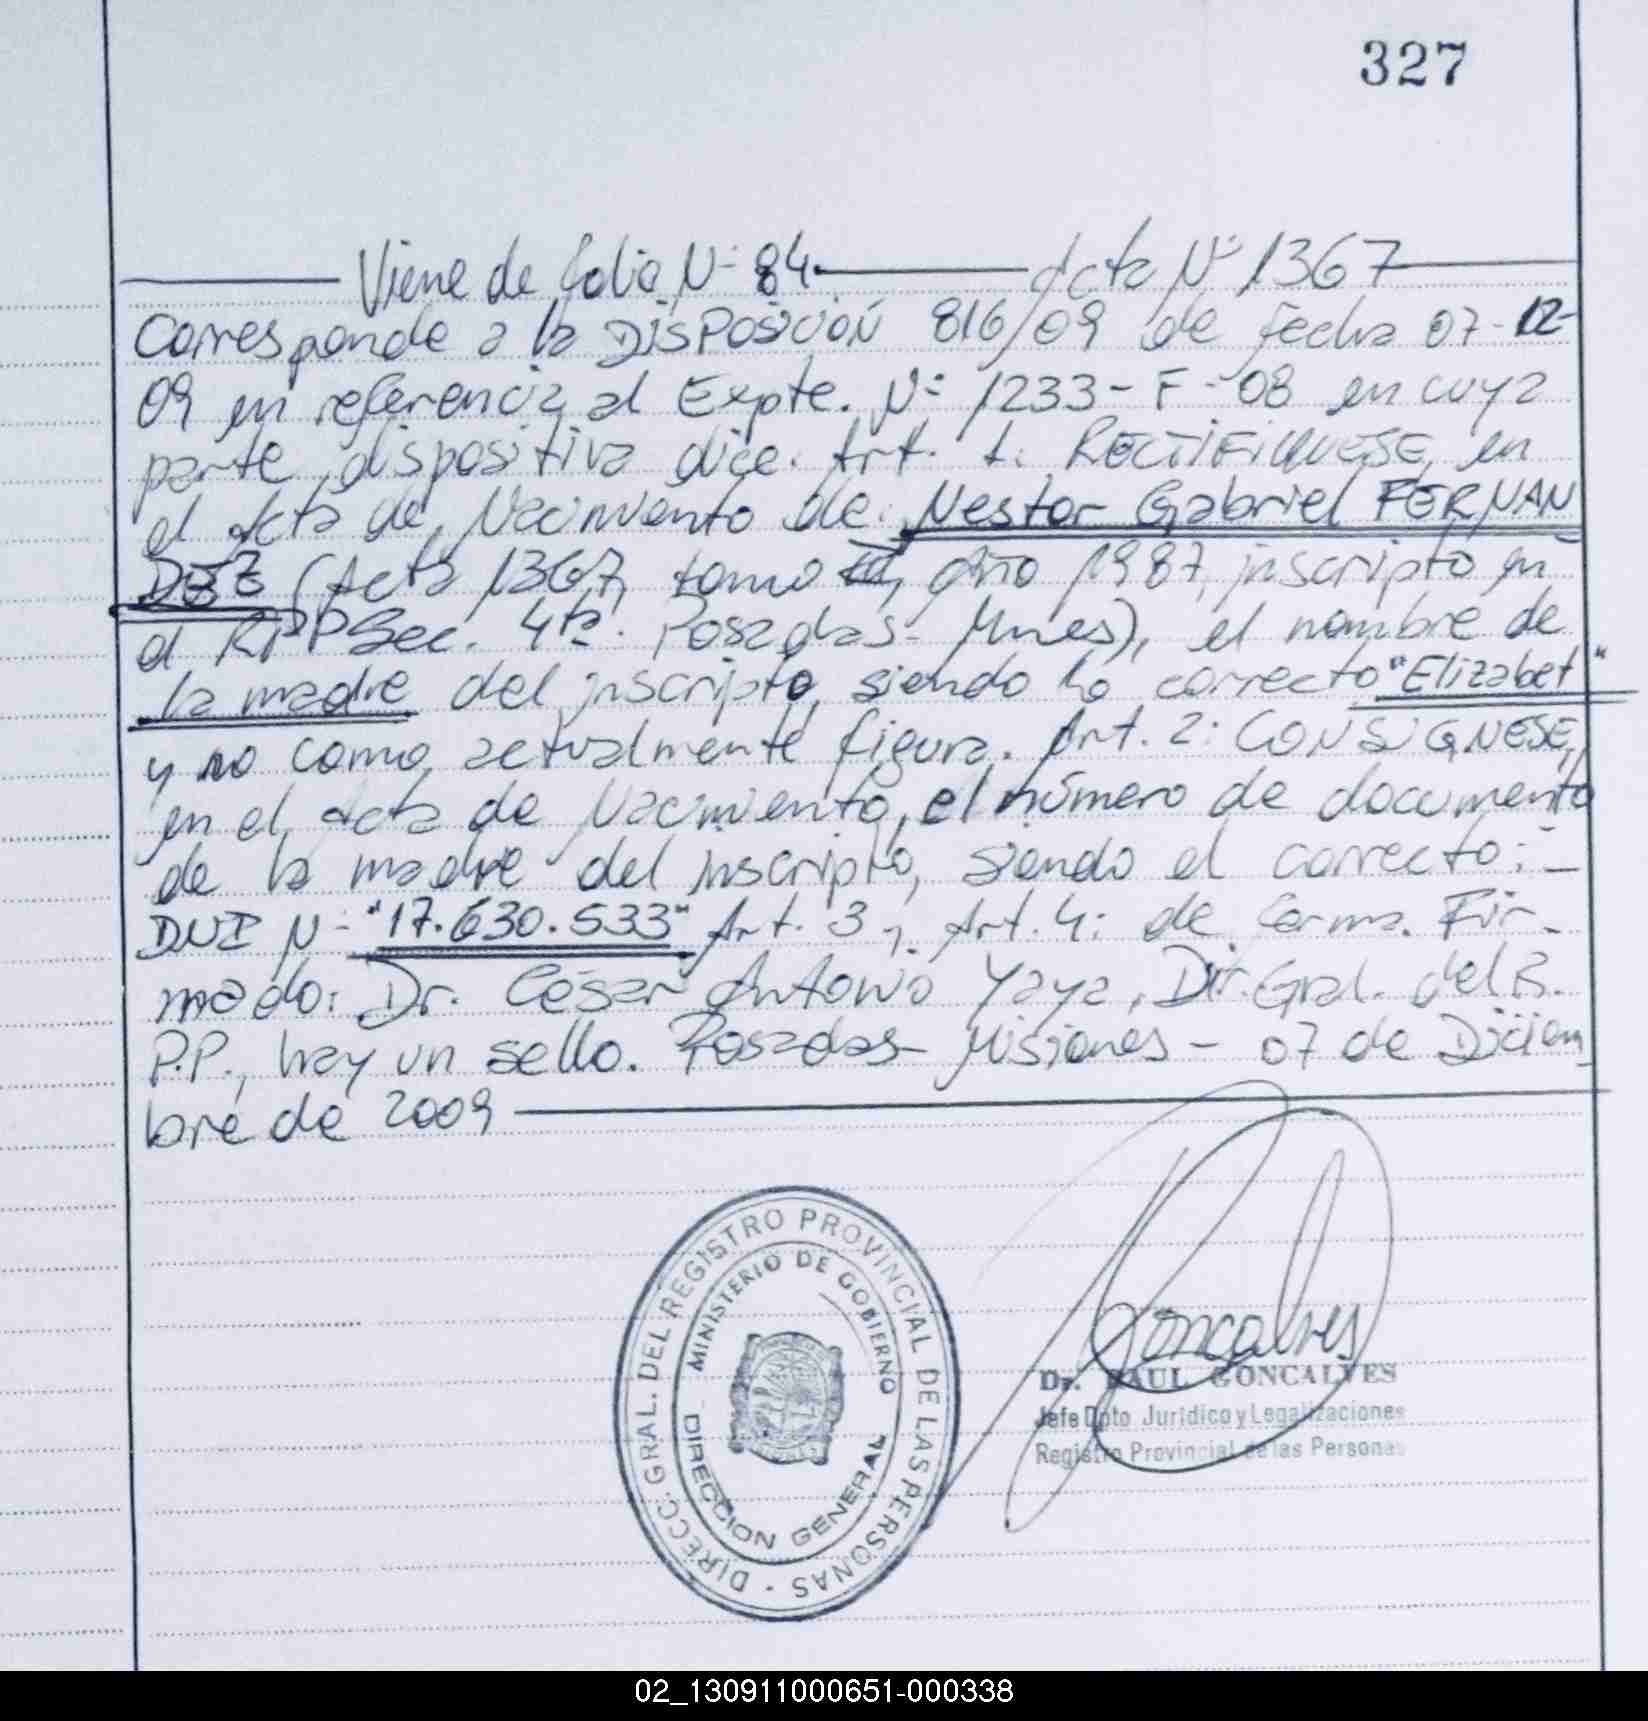 327
Viene de folio Nº 84. Acta Nº 1367
Corresponde a la DISPOSICIÓN 816/09 de fecha 07-12-
09 en referencia al Expte. Nº 1233-F-08 en cuya
parte dispositiva dice. Art. 1: RECTIFIQUESE, en
el Acta de Nacimiento de: Nestor Gabriel FERNAN
DEZ (Acta 1367, tomo año 1987, inscripto en
el RPP Sec. 4ta. Posadas- Mnes), el nombre de
la madre del inscripto, siendo lo correcto "Elizabet"
y no como actualmente figura. Art. 2: CONSIGNESE,
en el Acta de Nacimiento, el número de documento
de la madre del inscripto, siendo el correcto: -
DNI Nº "17.630.533" Art. 3 y Art. 4: de forma. Fir-
mado: Dr. César Antonio Yaya, Dir. Gral. del R.
P.P., hay un sello. Posadas- Misiones - 07 de Diciem
bre de 2009
DIRECC. GRAL. DEL REGISTRO PROVINCIAL DE LAS PERSONAS -
MINISTERIO DE GOBIERNO
DIRECCION GENERAL
Goncalves
Dr. RAUL GONCALVES
Jefe Dpto. Jurídico y Legalizaciones
Registro Provincial de las Personas
02_130911000651-000338